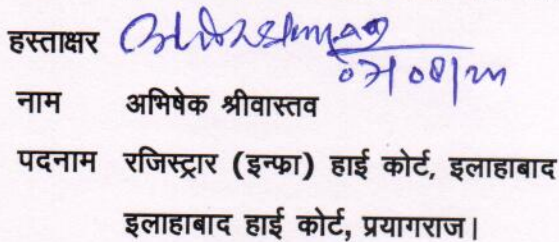 हस्ताक्षर
नाम अभिषेक श्रीवास्तव
पदनाम रजिस्ट्रार (इन्फ्रा) हाई कोर्ट, इलाहाबाद
इलाहाबाद हाई कोर्ट, प्रयागराज।